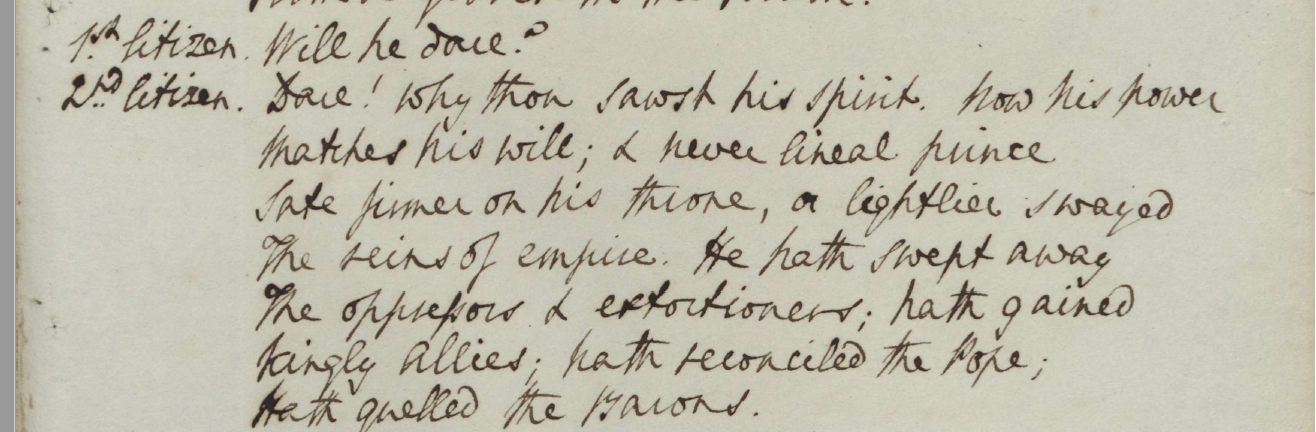 1st Citizen. Will he dare?
2nd Citizen. Dare! Why thou sawst his spirit. Now his power
Matches his will; & never lineal prince
Sate firmer on his throne, or lightlier swayed
The reins of empire. He hath swept away
The oppressors & extortioners; hath gained
Kingly allies; hath reconciled the Pope;
Hath quelled the Barons.